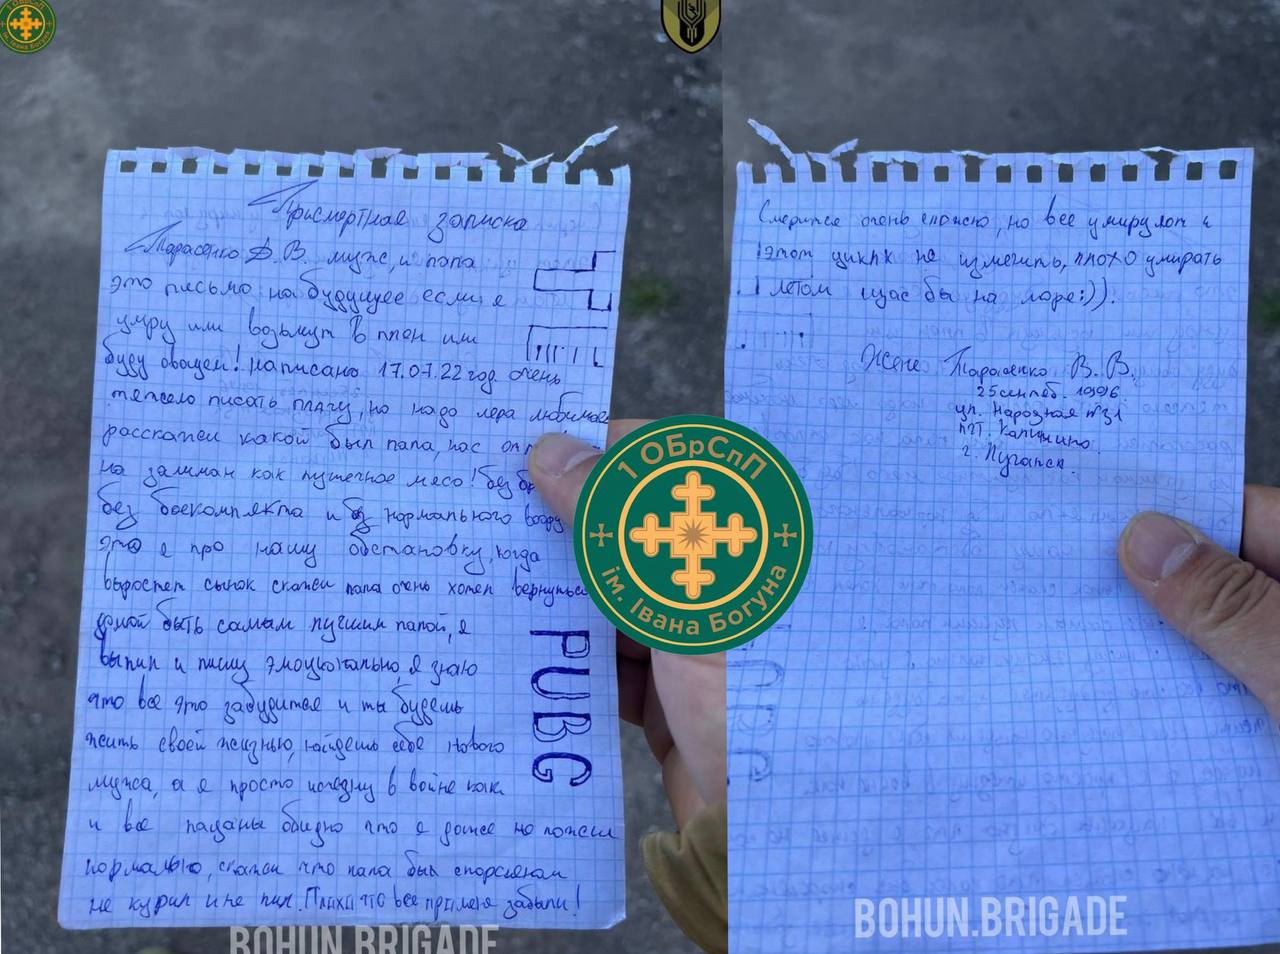 1 ОБрСпП
ім. Івана Богуна
Присмертная записка
Тарасенко Д. В. муж, и папа
это письмо на будущее если я
умру или возьмут в плен или
буду овощем! написано 17.07.22 год. очень
тяжело писать плачу, но надо лера любимая
расскажи какой был папа, нас отп
на заиман как пушечное мясо! без б
без боекомплекта и без нормального воору
это я про нашу обстановку, когда
выростет сынок скажи папа очень хотел вернуться
домой быть самым лучшим папой, я
выпил и пишу эмоцыонально, я знаю
что все это забудится и ты будешь
жить своей жизнью, найдешь себе нового
мужа, а я просто исчезну в войне как
и все пацаны обидно что я даже не пожил
нормально, скажи что папа был спорсменом
не курил и не пил. что все про меня забыли!
PUBG
BOHUN.BRIGADE
очень сложно, но все умирулот и
этот цикл не изменить, плохо умирать
летом щас бы на море:)).
Жене Тарасенко В. В.
25 сентеб. 1996
ул. Народная
пгт. Калинино.
г. Луганск.
1 ОБрСпП
ім. Івана Богуна
BOHUN.BRIGADE